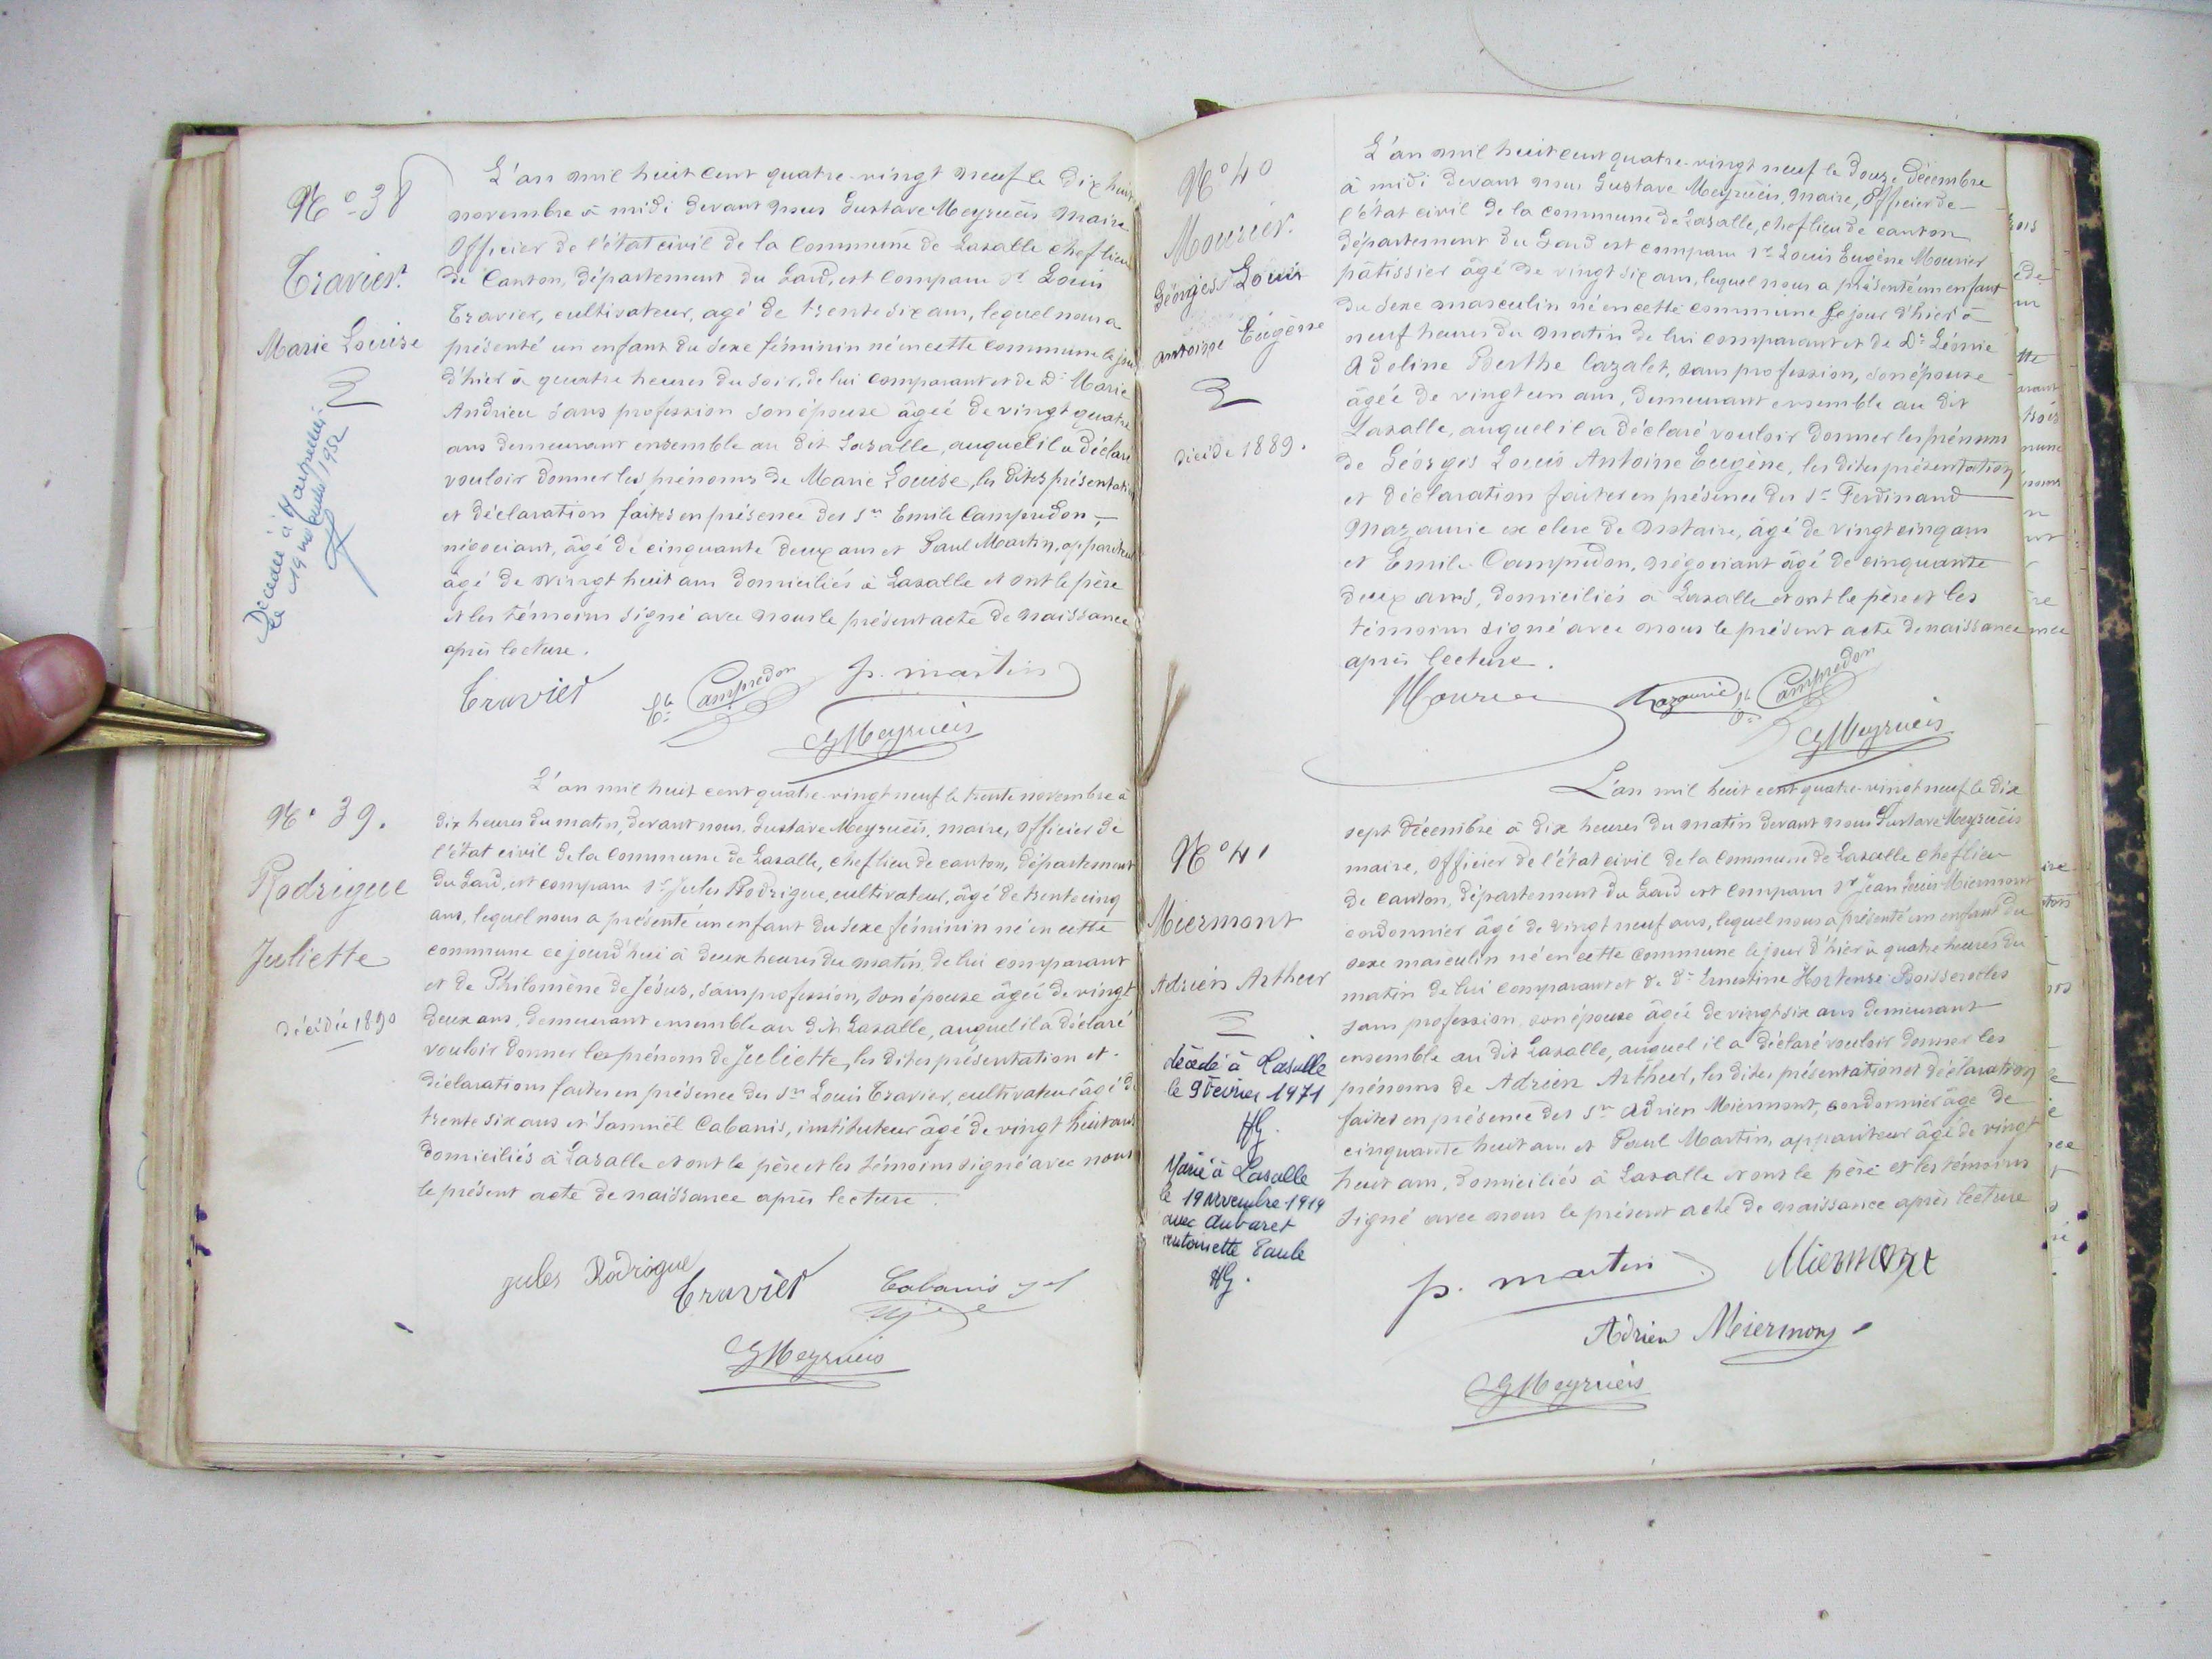 N° 38
Travier.
Marie Louise
Décédée à Montpellier
le 19 novembre 1952
L'an mil huit cent quatre-vingt neuf le dix huit
novembre à midi devant nous Gustave Meyrueis Maire
Officier de l'état civil de la Commune de Lasalle chef lieu
de Canton, département du Gard, est comparu Sr Louis
Travier, cultivateur, agé de trente six ans, lequel nous a
présenté un enfant du sexe féminin né en cette commune le jour
d'hier à quatre heures du soir, de lui comparant et de De Marie
Andrieu sans profession son épouse âgée de vingt quatre
ans demeurant ensemble au dit Lasalle, auquel il a déclaré
vouloir donner les prénoms de Marie Louise, les dites présentation
et déclaration faites en présence des Srs Emile Campredon,
négociant, âgé de cinquante deux ans et Paul Martin, appariteur
âgé de vingt huit ans domiciliés à Lasalle et ont le père
et les témoins signé avec nous le présent acte de naissance
après lecture.
Travier Ele Campredon p. martin
G Meyrueis
N° 39.
Rodrigue
Juliette
décédée 1890
L'an mil huit cent quatre-vingt neuf le trente novembre à
dix heures du matin, devant nous, Gustave Meyrueis, maire, officier de
l'état civil de la Commune de Lasalle, chef lieu de canton, département
du Gard, est comparu Sr Jules Rodrigue, cultivateur, âgé de trente cinq
ans, lequel nous a présenté un enfant du sexe féminin né en cette
commune ce jourd'hui à deux heures du matin, de lui comparant
et de Philomène de Jésus, sans profession, son épouse âgée de vingt
deux ans, demeurant ensemble au dit Lasalle, auquel il a déclaré
vouloir donner les prénoms de Juliette, les dites présentation et
déclarations faites en présence des Srs Louis Travier, cultivateur âgé de
trente six ans et Samuël Cabanis, instituteur âgé de vingt huit ans
domiciliés à Lasalle et ont le père et les témoins signé avec nous
le présent acte de naissance après lecture.
jules Rodrigue Travier Cabanis
G Meyrueis
N° 40
Mourier.
Géorges Louis
Antoine Eugène
décédé 1889.
L'an mil huit cent quatre-vingt neuf le douze Décembre
à midi devant nous Gustave Meyrueis, Maire, Officier de
l'état civil de la commune de Lasalle, chef lieu de canton
département du Gard est comparu Sr Louis Eugène Mourier
pâtissier âgé de vingt six ans, lequel nous a présenté un enfant
du sexe masculin né en cette commune le jour d'hier à
neuf heures du matin de lui comparant et de De Léonie
Adeline Berthe Cazalet, sans profession, son épouse
âgée de vingt un ans, demeurant ensemble au dit
Lasalle, auquel il a déclaré vouloir donner les prénoms
de Géorges Louis Antoine Eugène, les dites présentation
et déclaration faites en présence des Srs Ferdinand
Mazaurie ex clerc de Notaire, âgé de vingt cinq ans
et Emile Campredon, négociant âgé de cinquante
deux ans, domiciliés à Lasalle et ont le père et les
témoins signé avec nous le présent acte de naissance
après lecture.
Mourier Mazaurie Ele Campredon
G Meyrueis
N° 41
Miermont
Adrien Arthur
décédé à Lasalle
le 9 Février 1971
HG.
Marié à Lasalle
le 19 Novembre 1919
avec Aubaret
Antoinette Paule
HG.
L'an mil huit cent quatre-vingt neuf le dix
sept décembre à dix heures du matin devant nous Gustave Meyrueis
maire, officier de l'état civil de la Commune de Lasalle chef lieu
de Canton, département du Gard est comparu Sr Jean Louis Miermont
cordonnier âgé de vingt neuf ans, lequel nous a présenté un enfant du
sexe masculin né en cette commune le jour d'hier à quatre heures du
matin de lui comparant et de De Ernestine Hortense Boisserolles
sans profession, son épouse âgée de vingt six ans demeurant
ensemble au dit Lasalle, auquel il a déclaré vouloir donner les
prénoms de Adrien Arthur, les dites présentation et déclaration
faites en présence des Srs Adrien Miermont, cordonnier âgé de
cinquante huit ans et Paul Martin, appariteur âgé de vingt
huit ans, domiciliés à Lasalle et ont le père et les témoins
signé avec nous le présent acte de naissance après lecture
p. martin Miermont
Adrien Miermont
G Meyrueis